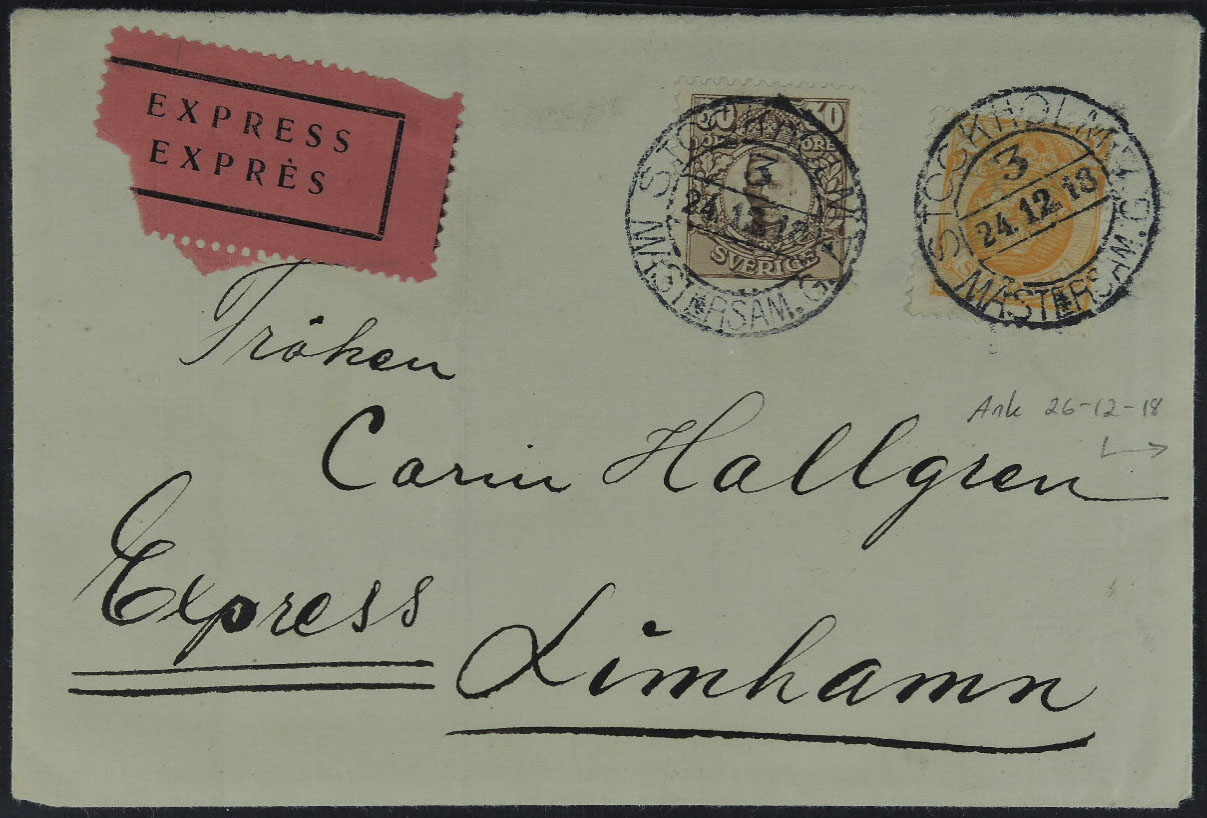 EXPRESS
EXPRÈS
30 30
ÖRE
SVERIGE
STOCKHOLM
3
24.12.18
MÄSTERSAM.G.
STOCKHOLM
3
24.12.18
MÄSTERSAM.G.
Fröken
Carin Hallgren
Ank 26-12-18
Express
Limhamn